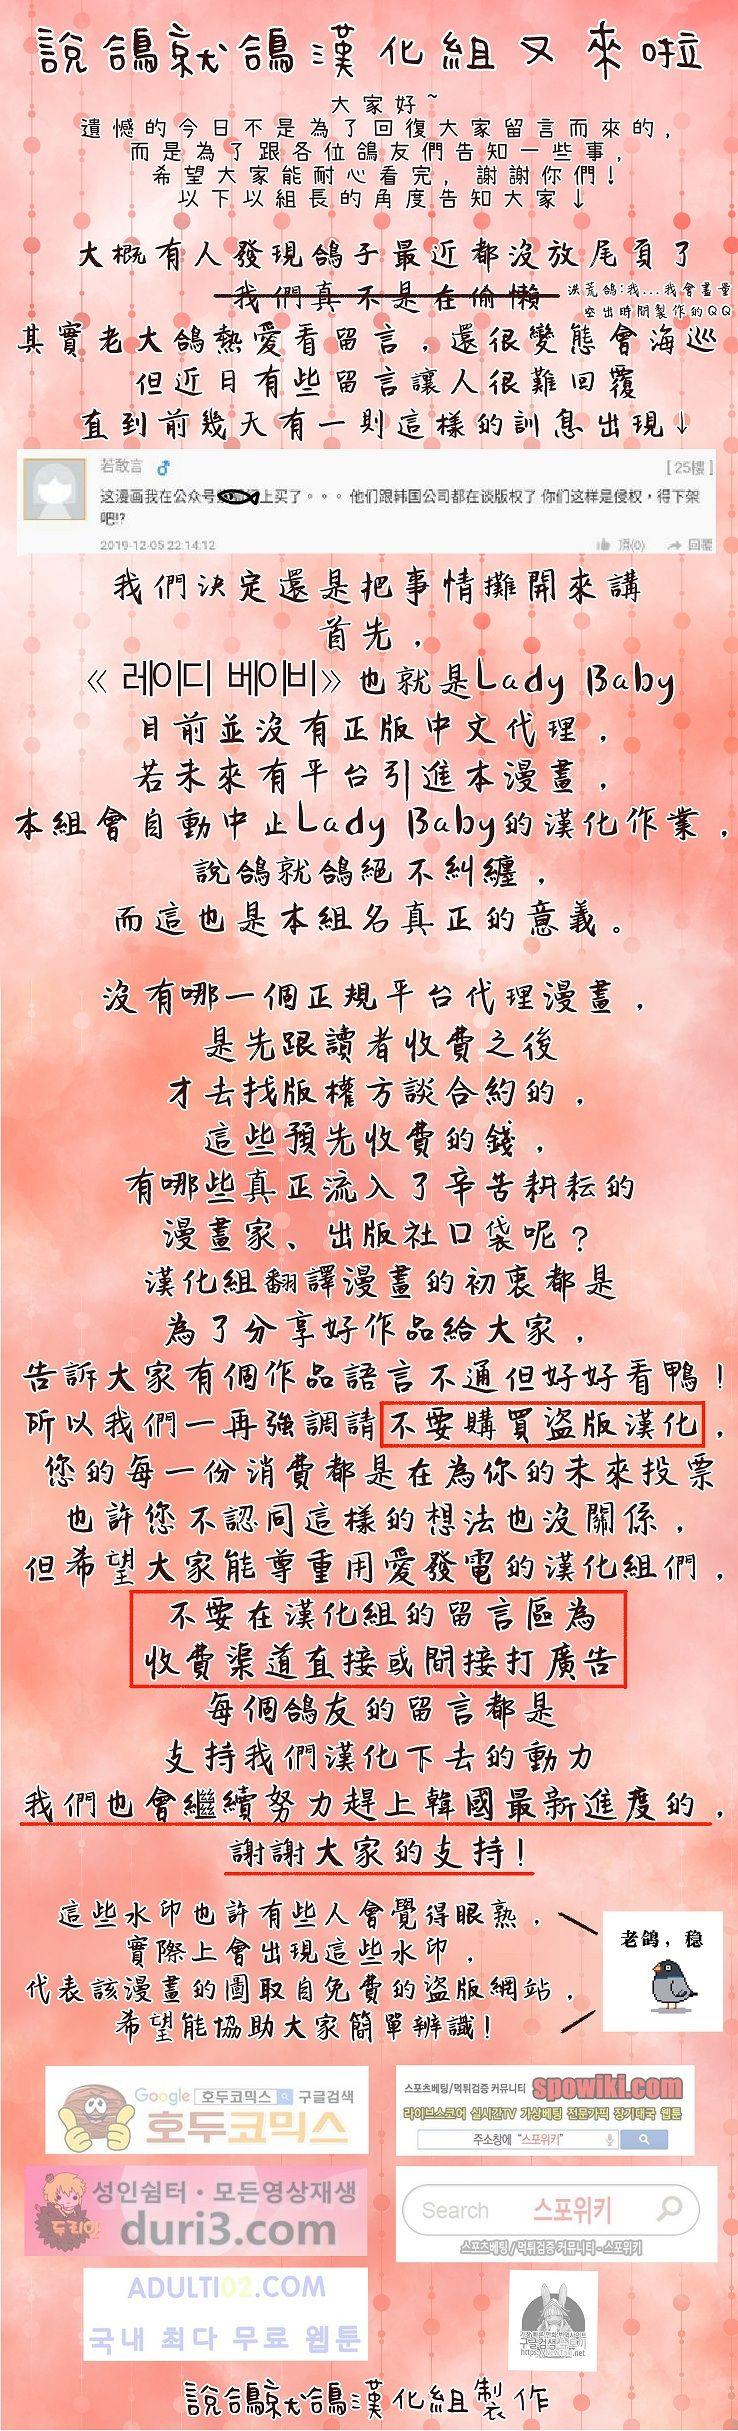 說鴿就鴿漢化組又來啦
大家好~
遺憾的今日不是為了回復大家留言而來的，
而是為了跟各位鴿友們告知一些事，
希望大家能耐心看完，謝謝你們！
以下以組長的角度告知大家↓
大概有人發現鴿子最近都沒放尾頁了
我們真不是在偷懶
洪荒鴿:我...我會盡量
空出時間製作的QQ
其實老大鴿熱愛看留言，還很變態會海巡
但近日有些留言讓人很難回覆
直到前幾天有一則這樣的訓息出現↓
若敢言 ♂ [25樓]
这漫画我在公众号 上买了。。。他们跟韩国公司都在谈版权了 你们这样是侵权，得下架
吧!?
2019-12-05 22:14:12 頂(0) 回覆
我們決定還是把事情攤開來講
首先，
《레이디 베이비》也就是Lady Baby
目前並沒有正版中文代理，
若未來有平台引進本漫畫，
本組會自動中止Lady Baby的漢化作業，
說鴿就鴿絕不糾纏，
而這也是本組名真正的意義。
沒有哪一個正規平台代理漫畫，
是先跟讀者收費之後
才去找版權方談合約的，
這些預先收費的錢，
有哪些真正流入了辛苦耕耘的
漫畫家、出版社口袋呢？
漢化組翻譯漫畫的初衷都是
為了分享好作品給大家，
告訴大家有個作品語言不通但好好看鴨！
所以我們一再強調請不要購買盜版漢化，
您的每一份消費都是在為你的未來投票
也許您不認同這樣的想法也沒關係，
但希望大家能尊重用愛發電的漢化組們，
不要在漢化組的留言區為
收費渠道直接或間接打廣告
每個鴿友的留言都是
支持我們漢化下去的動力
我們也會繼續努力趕上韓國最新進度的，
謝謝大家的支持！
這些水印也許有些人會覺得眼熟，
實際上會出現這些水印，
代表該漫畫的圖取自免費的盜版網站，
希望能協助大家簡單辨識！
老鸽，稳
Google 호두코믹스 구글검색
호두코믹스
스포츠베팅/먹튀검증 커뮤니티 spowiki.com
라이브스코어 실시간TV 가상베팅 전문가픽 장기대국 웹툰
주소창에 "스포위키"
두리안
성인쉼터・모든영상재생
duri3.com
Search 스포위키
스포츠베팅/먹튀검증 커뮤니티 - 스포위키
ADULTI02.COM
국내 최다 무료 웹툰
說鴿就鴿漢化組製作